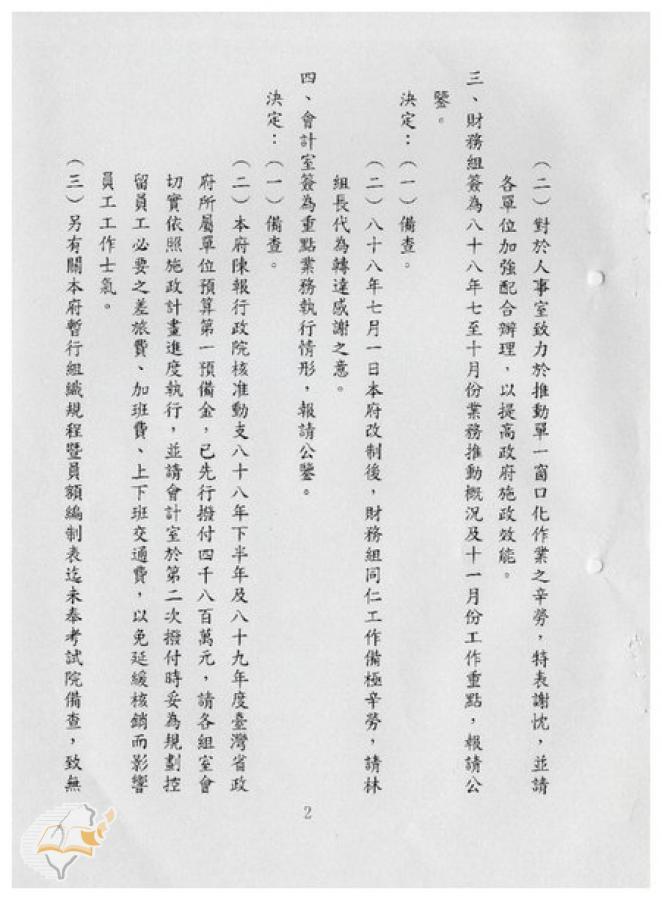 （二）對於人事室致力於推動單一窗口化作業之辛勞，特表謝忱，並請
各單位加強配合辦理，以提高政府施政效能。
三、財務組簽為八十八年七至十月份業務推動概況及十一月份工作重點，報請公
鑒。
決定：（一）備查。
（二）八十八年七月一日本府改制後，財務組同仁工作備極辛勞，請林
組長代為轉達感謝之意。
四、會計室簽為重點業務執行情形，報請公鑒。
決定：（一）備查。
（二）本府陳報行政院核准動支八十八年下半年及八十九年度臺灣省政
府所屬單位預算第一預備金，已先行撥付四千八百萬元，請各組室會
切實依照施政計畫進度執行，並請會計室於第二次撥付時妥為規劃控
留員工必要之差旅費、加班費、上下班交通費，以免延緩核銷而影響
員工工作士氣。
（三）另有關本府暫行組織規程暨員額編制表迄未奉考試院備查，致無
2